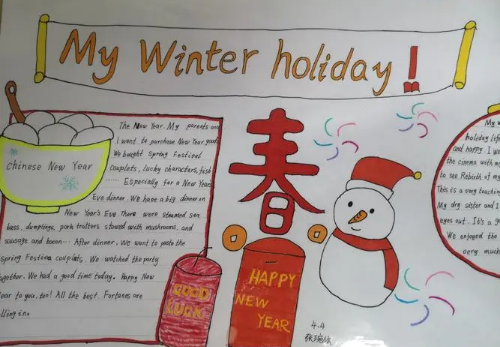 My Winter holiday!
Chinese New Year
The New Year. My parents and
I want to purchase New Year goods
We bought Spring Festival
couplets, lucky characters, fish
Especially for a New Year
Eve dinner. We have a big dinner on
New Year's Eve. There were steamed sea
bass, dumplings, pork trotters stewed with mushrooms, and
sausage and bacon... After dinner. We want to paste the
Spring Festival couplets. We watched the party
together. We had a good time today. Happy New
Year to you, too! All the best. Fortunes are
春
GOOD
LUCK
HAPPY
NEW
YEAR
4-4
My
holiday life
and happy. I w
the cinema with
to see
This is a
My dog sister and I
We enjoyed the
very much